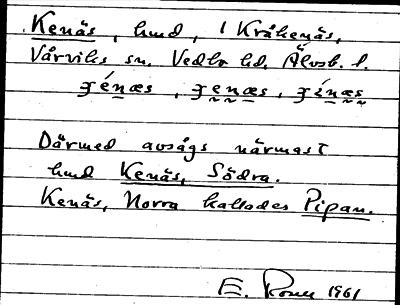 Kenäs, hmd, i Kråkenäs,
Vårviks sn. Vedbo hd, Älvsb. l.
Därmed avsågs närmast
hmd Kenäs, Södra.
Kenäs, Norra kallades Pipan.
E. 1961